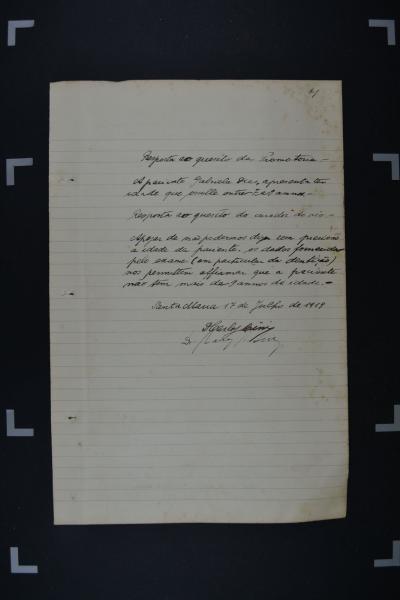 Resposta ao quesito da Promotoria –
A paciente Gabriela Dias, apresenta ter
idade que oscilla entre 7 e 9 annos.
Resposta ao quesito do curador do réo –
Apezar de não podermos dizer com precisão
a idade da paciente, os dados fornecidos
pelo exame (em particular da dentição)
nos permittem affirmar que a paciente
não tem mais de 9 annos de idade. –
Santa Maria 17 de Julho de 1918
Dr